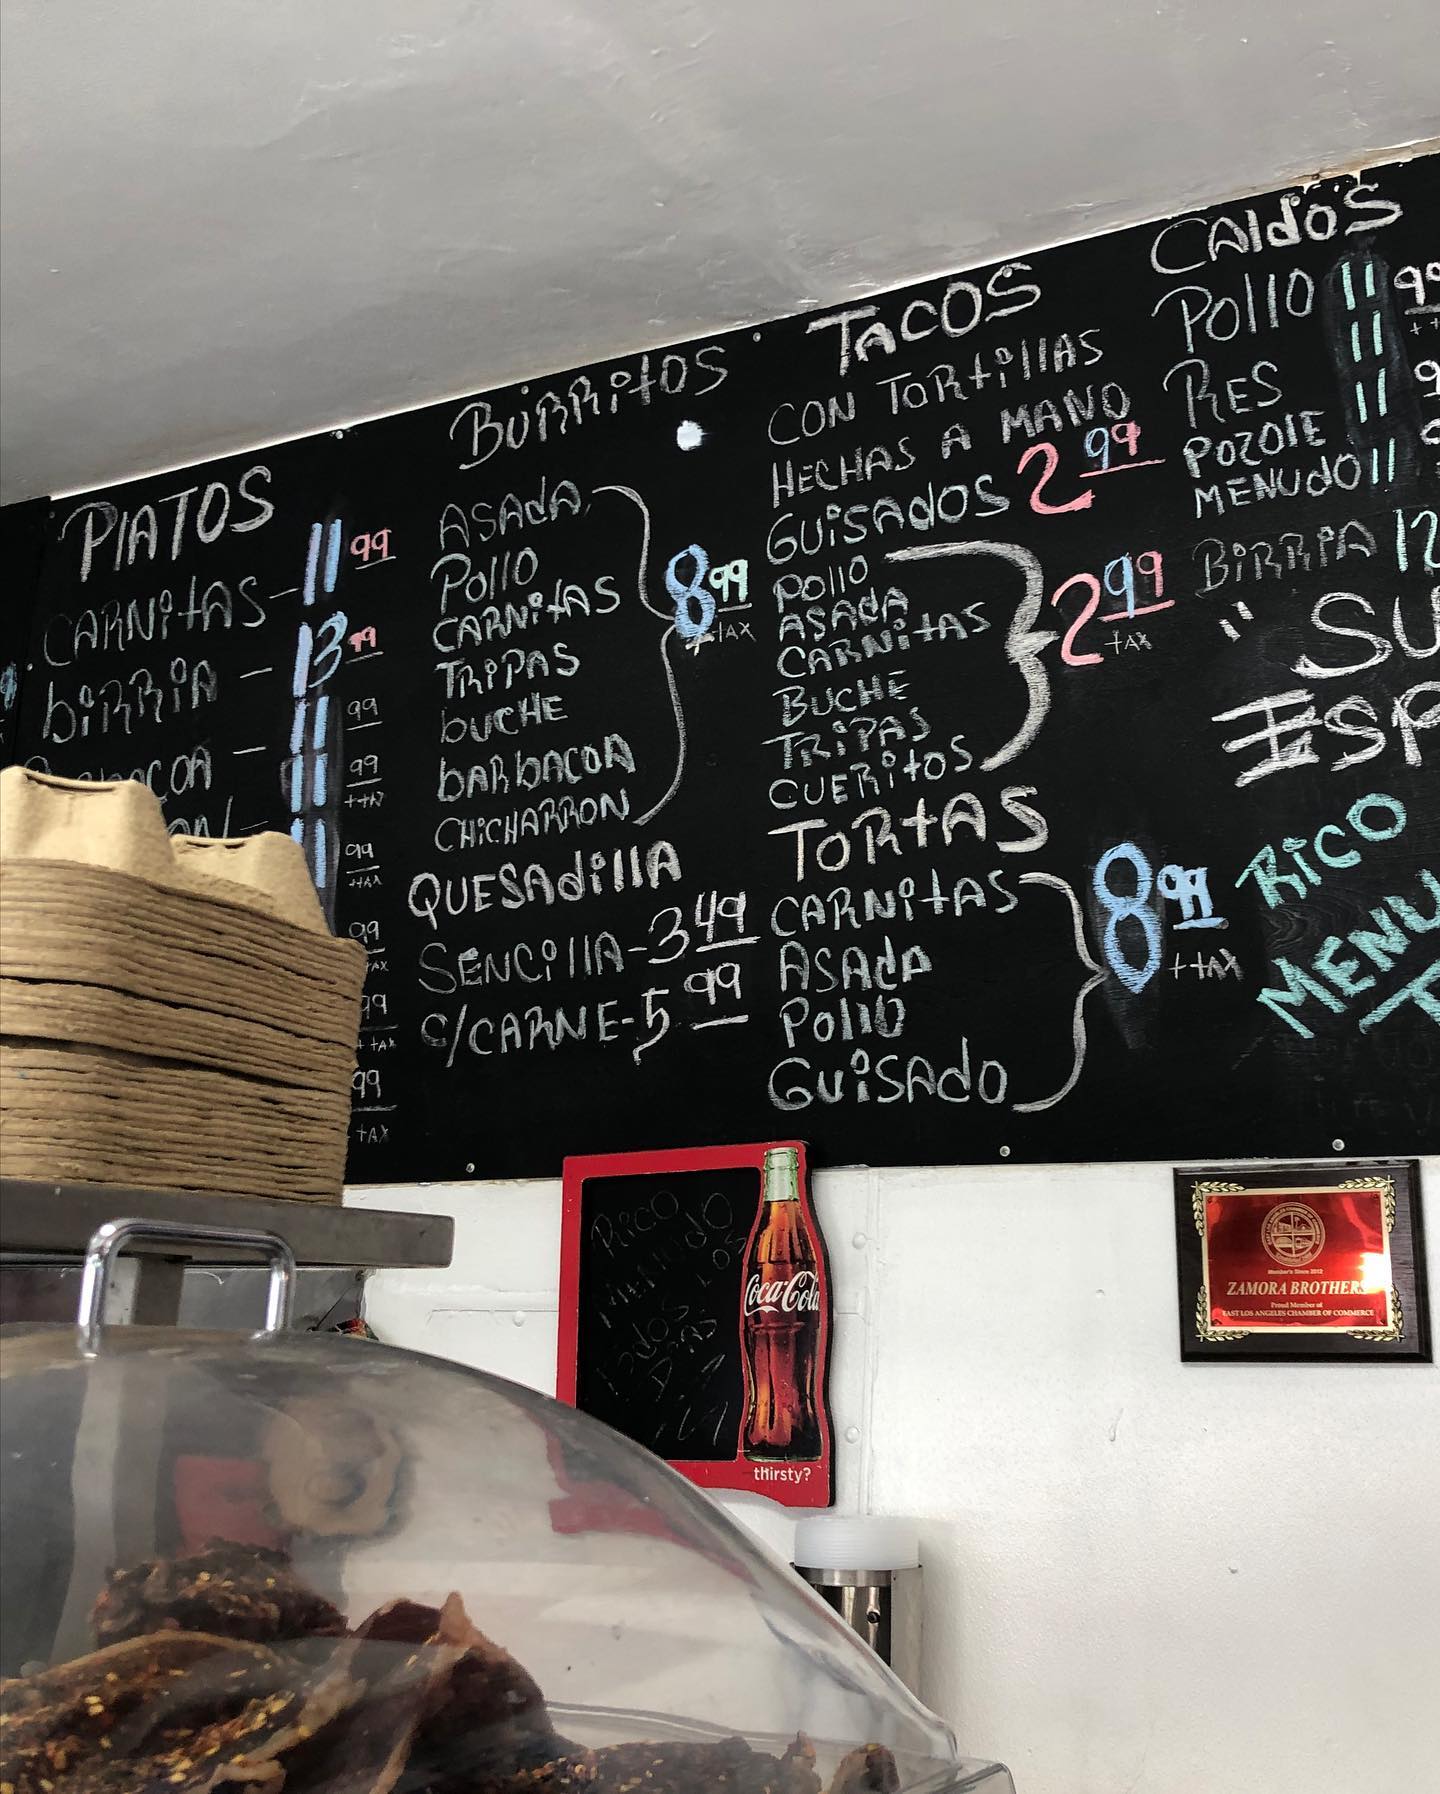 PlATOS
CARNitAS - 11 99
biRRiA - 13 99
11 99
11 99 ++AX
11 99 ++AX
99
99
99
+AX
BURRitOS
ASAdA
Pollo
CARNitAS
TRiPAS
bUCHE
bARbACOA
CHiCHARRON
8 99
+ tAX
QUESAdillA
SENCillA - 3 49
C/CARNE - 5 99
TACOS
CON TORtillAS
HECHAS A MANO
GUiSADOS 2 99
Pollo
ASAdA
CARNitAS
BUCHE
TRiPAS
CUERitOS
2 99
+AX
TORtAS
CARNitAS
ASAdA
Pollo
GUiSAdO
8 99
++AX
CAldO'S
Pollo 11 99
RES 11
POZOlE 11
MENUdO 11
BiRRiA 12
" SU
ESP
RiCO
MENU
RiCO
MENUDO
lOS
DiAS
Coca-Cola
thirsty?
Member's Since 2012
ZAMORA BROTHERS
Proud Member of
EAST LOS ANGELES CHAMBER OF COMMERCE